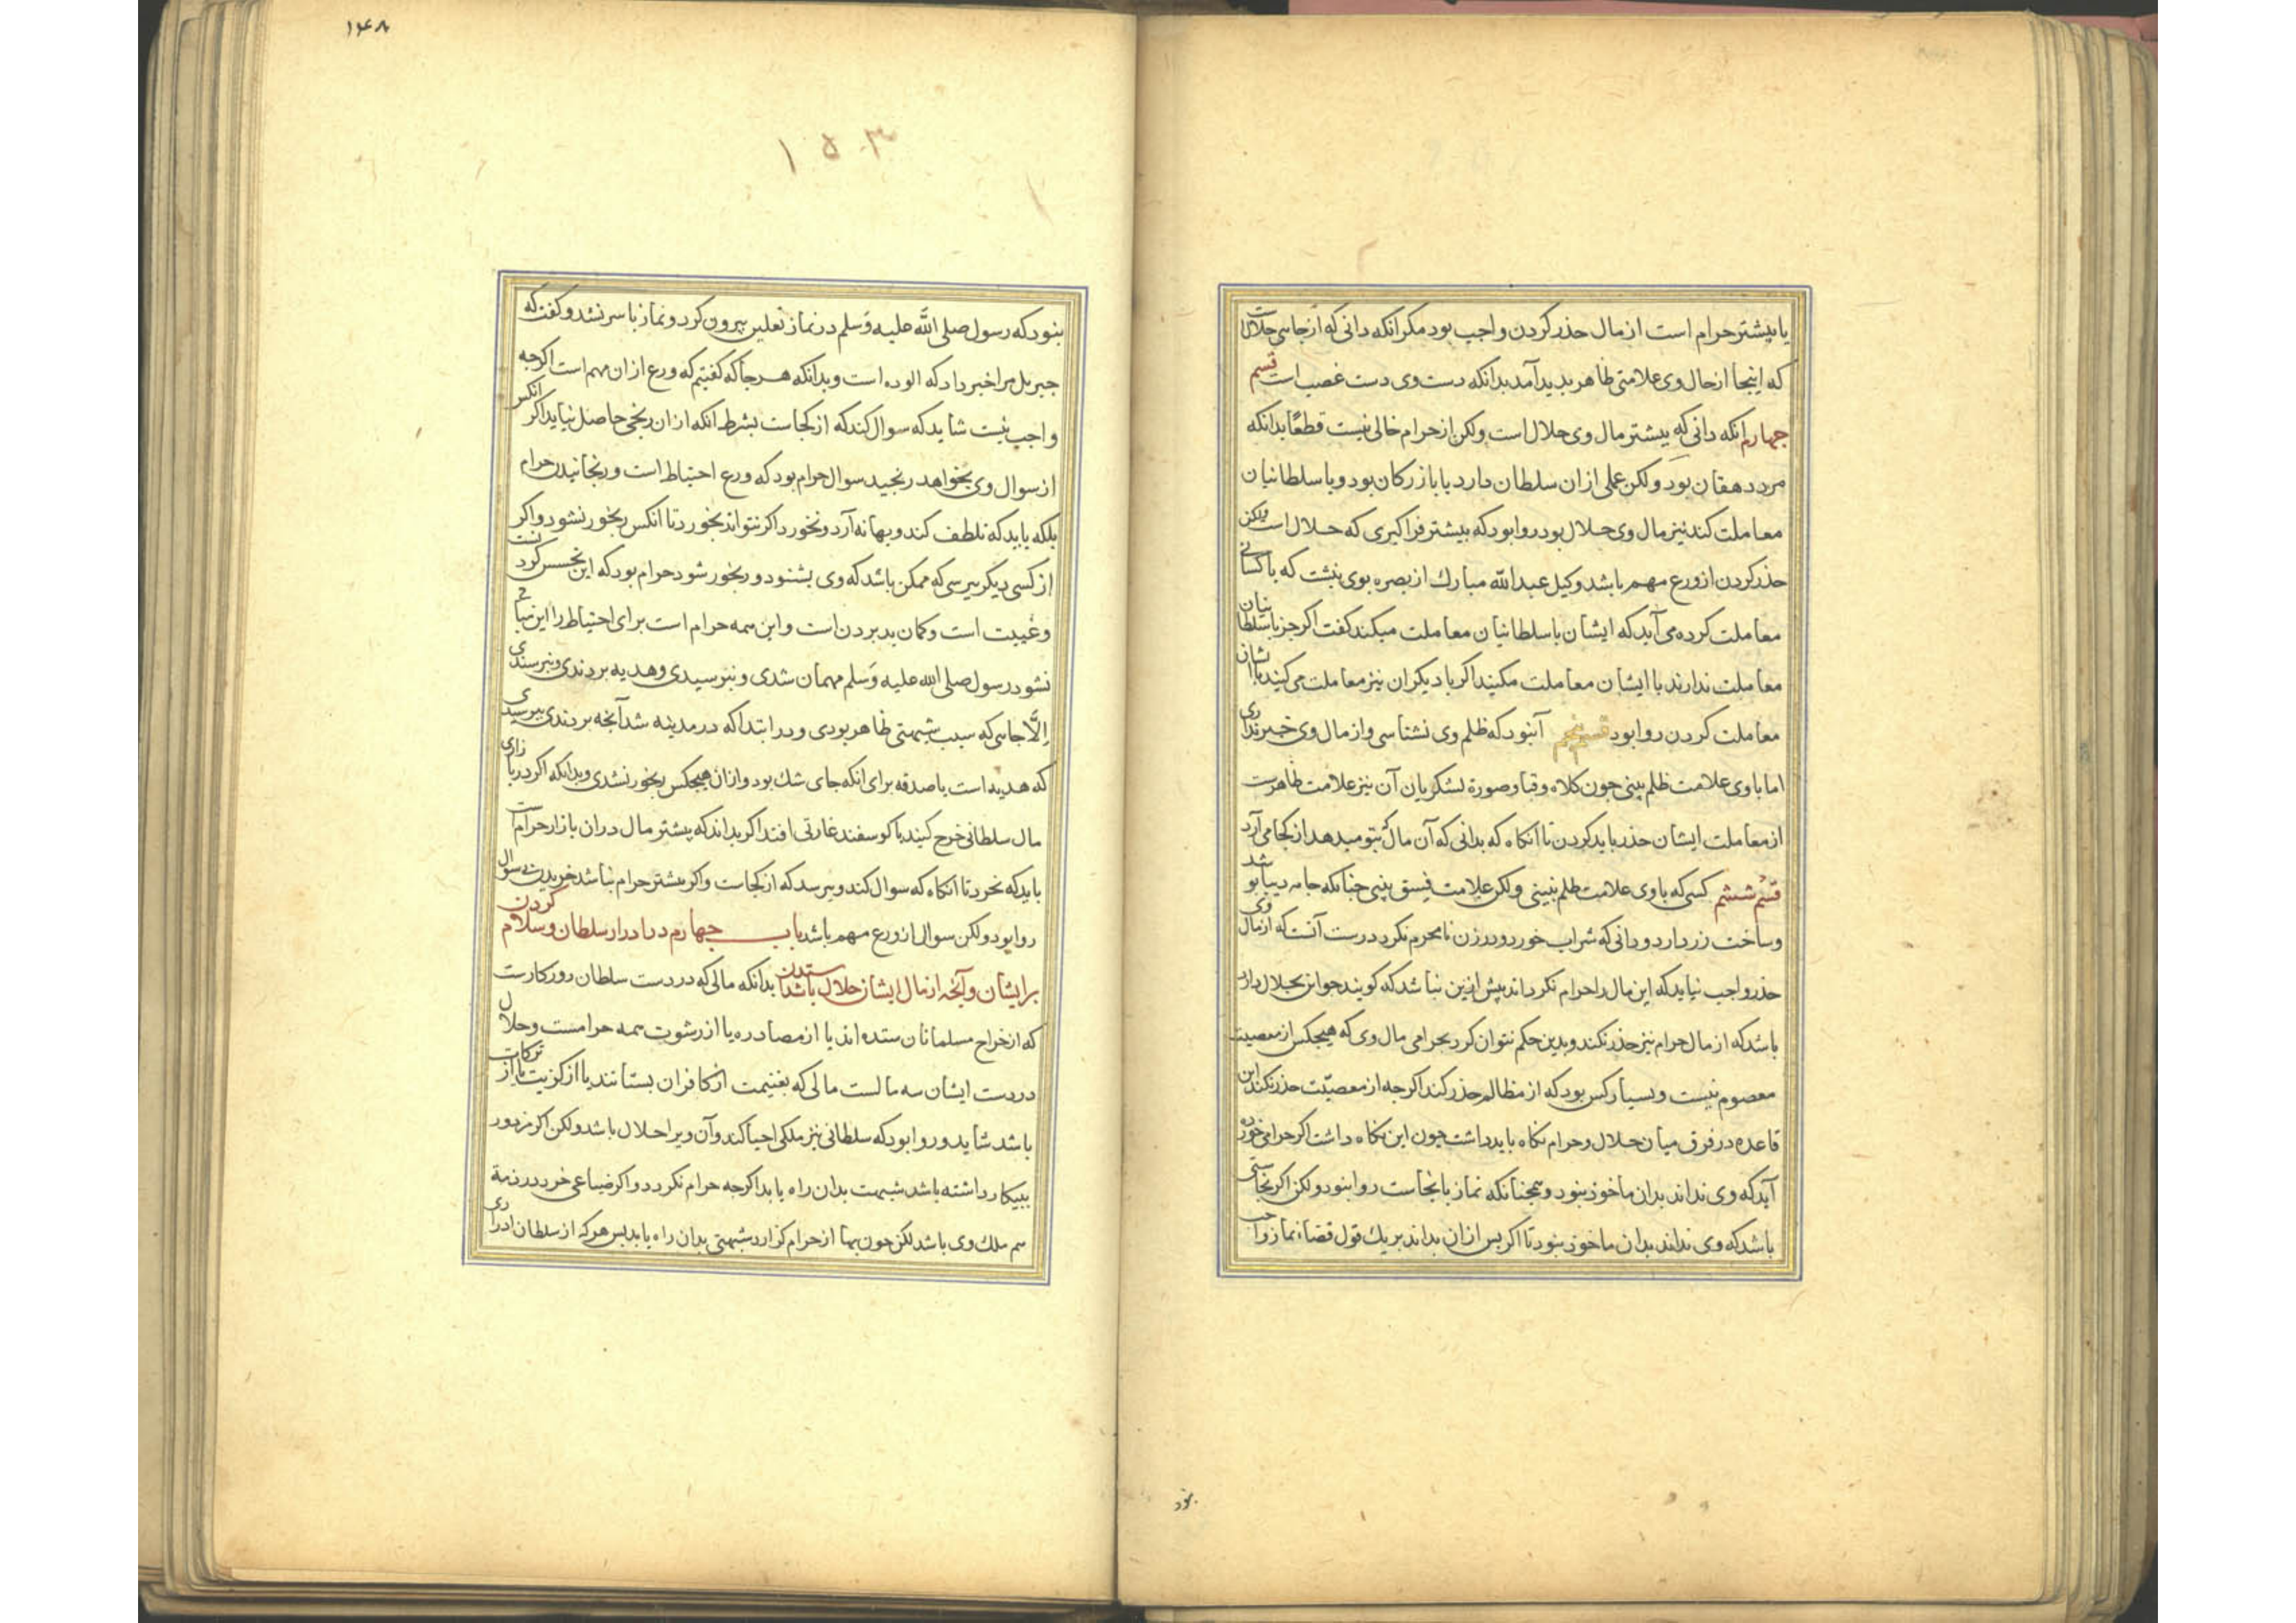 یا بیشتر حرام است از مال حذر کردن واجب بود مکر انکه دانی که از جایی حلالست
که اینجا از حال وی علامتی ظاهر بدید آمد بدانکه دست وی دست غصب است قسم
جهارم انکه دانی که بیشتر مال وی حلال است ولکن از حرام خالی نیست قطعًا بدانکه
مرد دهقان بود ولکن عملی از ان سلطان دارد یا بازرکان بود و با سلطانیان
معاملت کند نیز مال وی حلال بود روا بود که بیشتر فراکیری که حلال است ولکن
حذر کردن از ورع مهم باشد وکیل عبدالله مبارك از بصره بوی نبشت که با کسانی
معاملت کرده می آید که ایشان با سلطانیان معاملت میکنند کفت اکر جز با سلطانیان
معاملت ندارند با ایشان معاملت مکنید اکر با دیکران نیز معاملت می کنند با ایشان
معاملت کردن روا بود قسم پنجم آنبود که ظلم وی نشناسی و از مال وی خبر نداری
اما با وی علامت ظلم بینی جون کلاه و قبا و صورة لشکریان آن نیز علامت ظاهرست
از معاملت ایشان حذر باید کردن تا آنکاه که بدانی که آن مال که بتو میدهد از کجا می آرد
قسم ششم کسی که با وی علامت ظلم نبینی ولکن علامت فسق بینی جنانکه جامه دیبا بوشد
و ساخت زر دارد و دانی که شراب خورد و در زن نامحرم نکرد درست آنست که از مال وی
حذر واجب نیاید که این مال را حرام نکرداند بیش ازین نباشد که کویند جون این بحلال دارد
باشد که از مال حرام نیز حذر نکند و بدین حکم نتوان کرد بحرامی مال وی که هیجکس از معصیت
معصوم نیست و بسیار کس بود که از مظالم حذر کند اکرجه از معصیّت حذر نکند این
قاعده در فرق میان حلال و حرام نکاه باید داشت جون این نکاه داشت اکر حرامی خورده
آید که وی نداند بدان ماخوذ نبود و همجنانکه نماز با نجاست روا نبود ولکن اکر نجاستی
باشد که وی نداند بدان ماخوذ نبود تا اکر بس از ان بداند بر یك قول قضاء نماز واجب
نبود
۱۴۸
۱۵۰۳
نبود که رسول صلی الله علیه وَسلم در نماز نعلین بیرون کرد و نماز با سر نشد و کفت که
جبریل مرا خبر داد که الوده است و بدانکه هر جا که کفتیم که ورع از ان مهم است اکرجه
واجب نیست شاید که سوال کند که از کجاست بشرط انکه از ان رنجی حاصل نیاید اکر انکس
از سوال وی بخواهد رنجید سوال حرام بود که ورع احتیاط است و رنجانیدن حرام
بلکه باید که تلطف کند و بهانه آرد و نخورد اکر نتواند بخورد تا انکس رنجور نشود و اکر
از کسی دیکر برسی که ممکن باشد که وی بشنود و رنجور شود حرام بود که این تجسس کردنست
و غیبت است و کمان بد بردن است و این همه حرام است برای احتیاط را این مباح
نشود رسول صلی الله علیه وَسلم مهمان شدی و نبرسیدی و هدیه بردندی و نبرسیدی
اِلّا جایی که سبب شبهتی ظاهر بودی و در ابتدا که در مدینه شد آنجه بردندی ببرسیدی
که هدیه است یا صدقه برای انکه جای شك بود و از ان هیجکس رنجور نشدی و بدانکه اکر در بازاری
مال سلطانی خرج کنند یا کوسفند غارتی افتد اکر بداند که بیشتر مال در ان بازار حرام است
باید که نخرد تا آنکاه که سوال کند و ببرسد که از کجاست و اکر بیشتر حرام نباشد خریدن بی سوال
روا بود ولکن سوال از ورع مهم باشد باب جهارم در ادرار سلطان و سلام کردن
بر ایشان و آنجه از مال ایشان حلال باشد ستدن بدانکه مالی که در دست سلطان روزکارست
که از خراج مسلمانان ستده اند یا از مصادره یا از رشوت همه حرامست و حلال
در دست ایشان سه مالست مالی که بغنیمت از کافران بستانند یا از کزیت یا از ترکات
باشد شاید و روا بود که سلطانی نیز ملکی احیا کند و آن ویرا حلال باشد ولکن اکر مزدور
ببیکار داشته باشد شبهت بدان راه یابد اکرجه حرام نکردد و اکر ضیاعی خرد در ذمة
هم ملك وی باشد لکن جون بها از حرام کزارد شبهتی بدان راه یابد بس هر که از سلطان ادراری